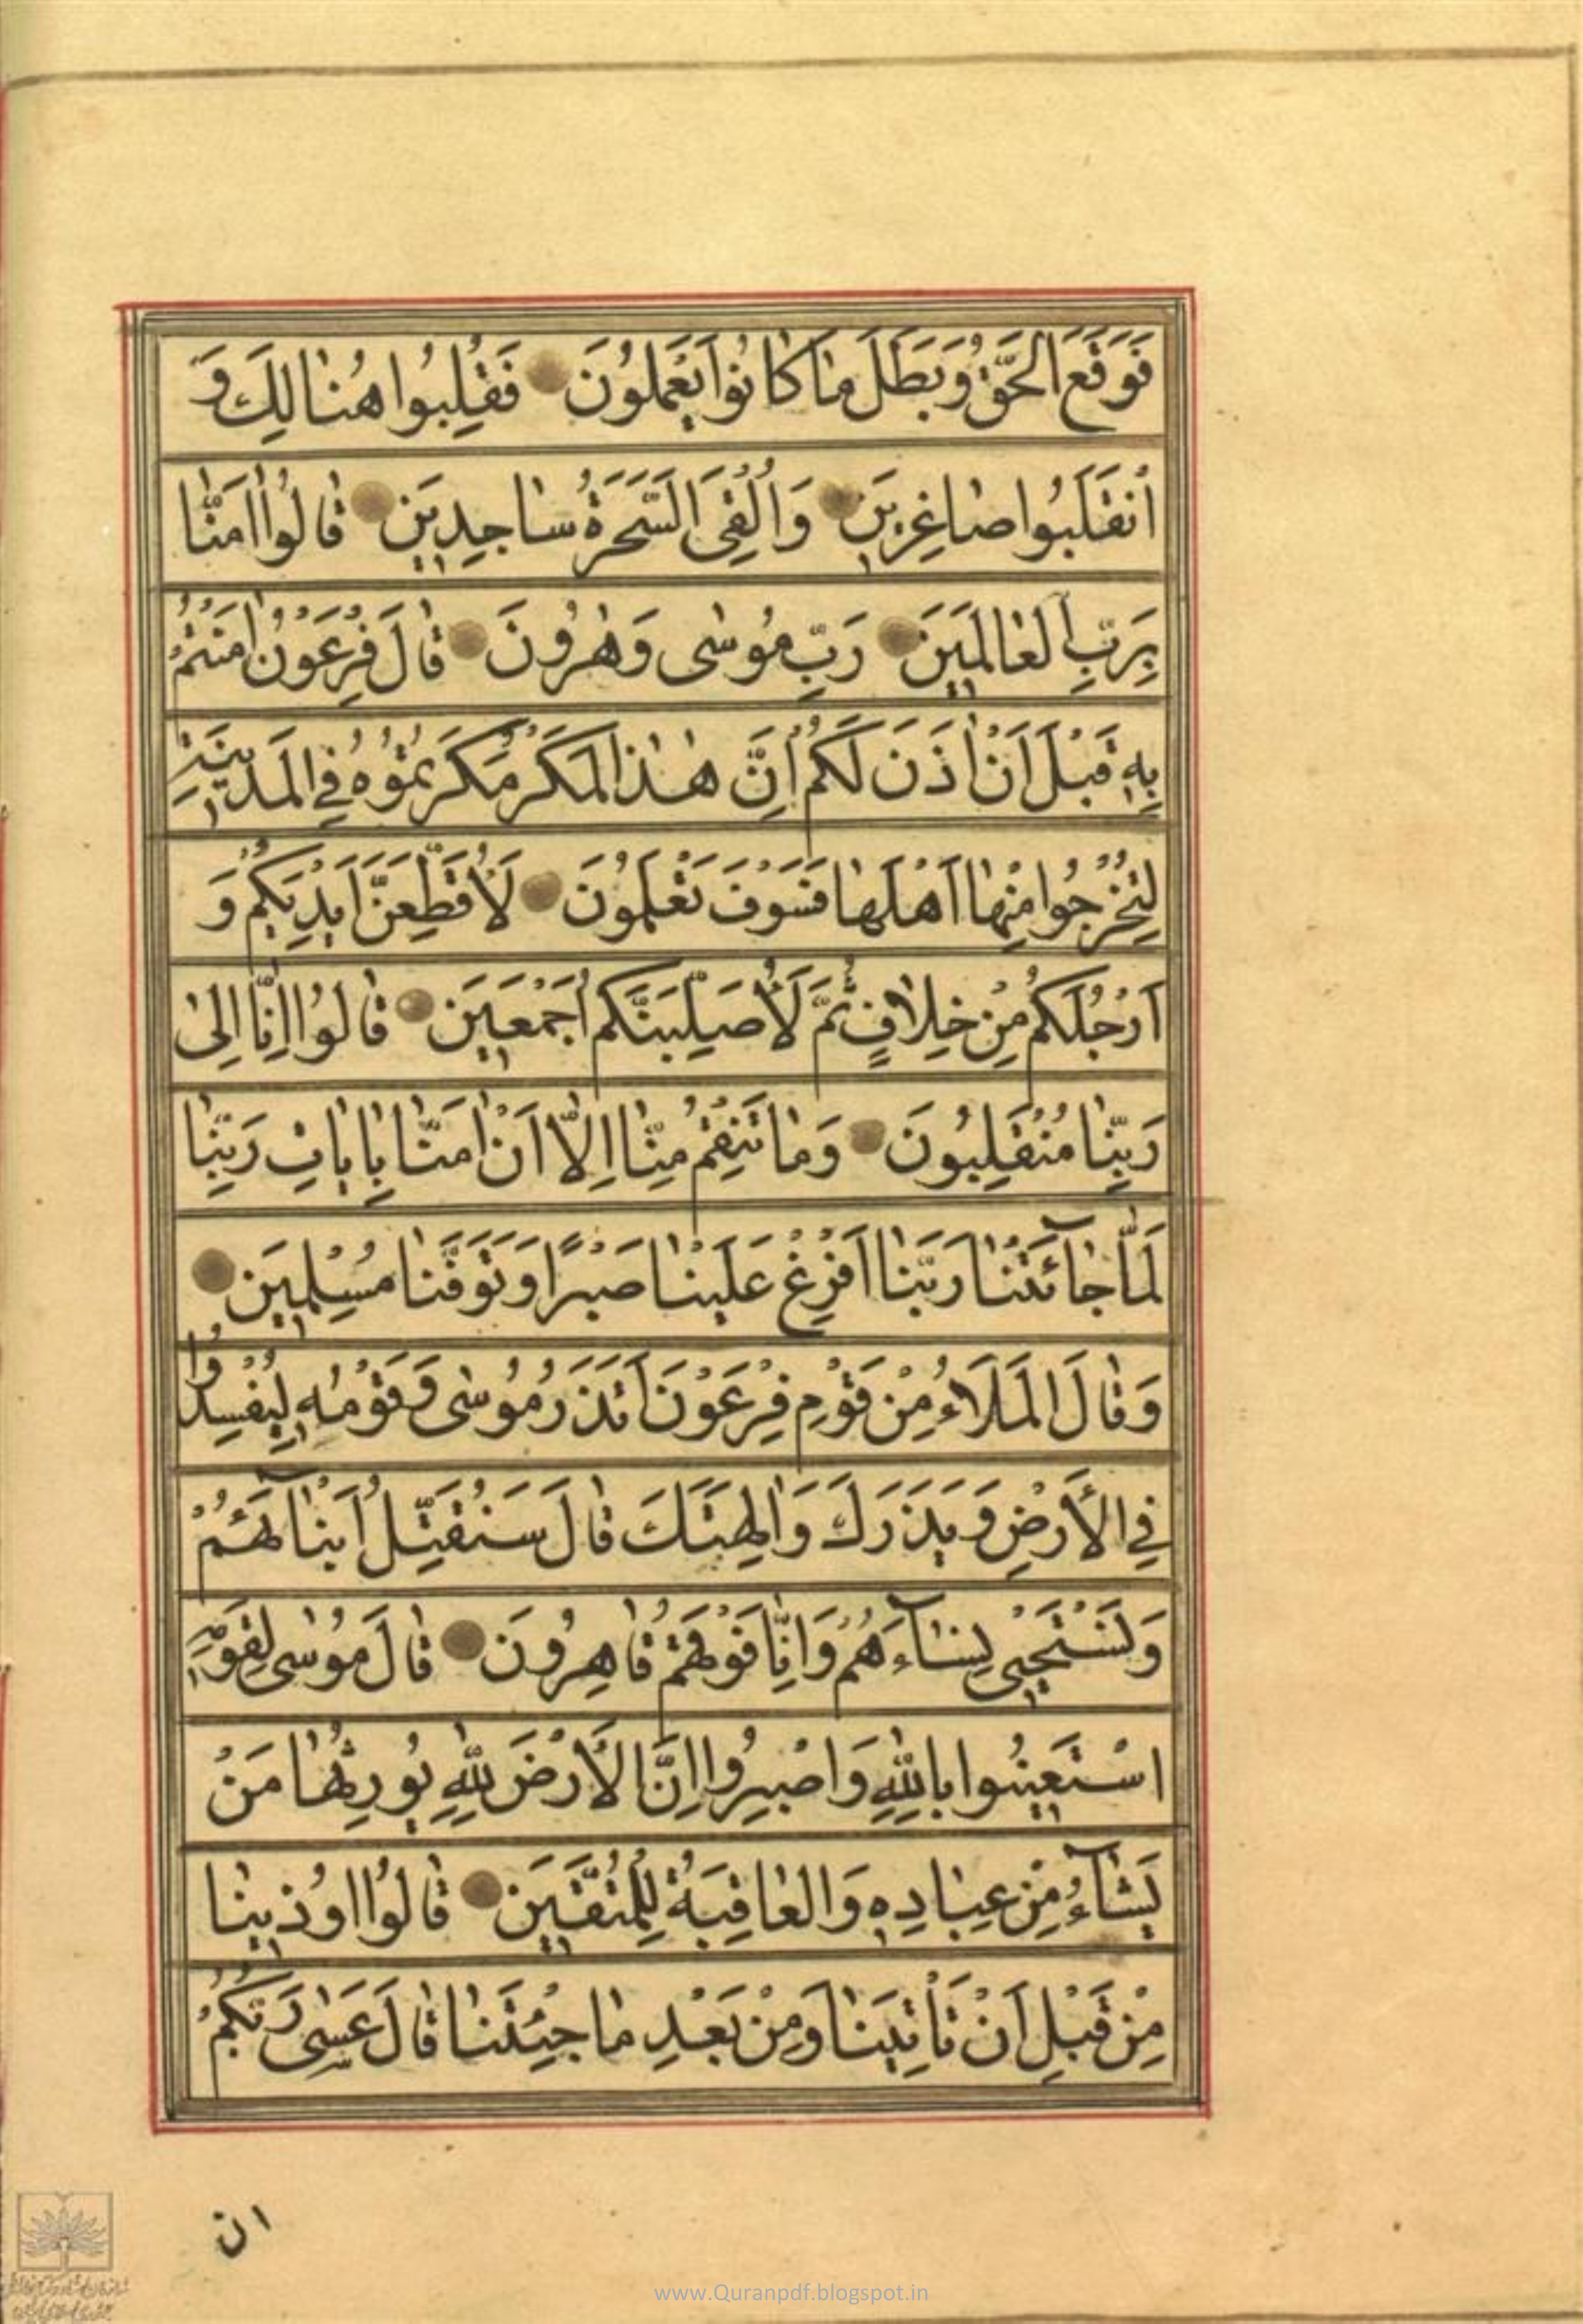 فَوَقَعَ الْحَقُّ وَبَطَلَ مٰا كٰانُوا يَعْمَلُونَ فَغُلِبُوا هُنٰالِكَ وَ
اْنقَلَبُوا صٰاغِرِينَ وَاُلْقِىَ السَّحَرَةُ سٰاجِدِينَ قٰالُوا اٰمَنّٰا
بِرَبِّ الْعٰالَمِينَ رَبِّ مُوسٰى وَهٰرُونَ قٰالَ فِرْعَوْنُ اٰمَنْتُمْ
بِهِ قَبْلَ اَنْ اٰذَنَ لَكُمْ اِنَّ هٰذٰا لَمَكْرٌ مَكَرْتُمُوهُ فِى الْمَدِينَةِ
لِتُخْرِجُوا مِنْهٰا اَهْلَهٰا فَسَوْفَ تَعْلَمُونَ لَاُقَطِّعَنَّ اَيْدِيَكُمْ وَ
اَرْجُلَكُمْ مِنْ خِلٰافٍ ثُمَّ لَاُصَلِّبَنَّكُمْ اَجْمَعِينَ قٰالُوا اِنّٰا اِلىٰ
رَبِّنٰا مُنْقَلِبُونَ وَمٰا تَنْقِمُ مِنّٰا اِلّٰا اَنْ اٰمَنّٰا بِاٰيٰاتِ رَبِّنٰا
لَمّٰا جٰآئَتْنٰا رَبَّنٰا اَفْرِغْ عَلَيْنٰا صَبْرًا وَتَوَفَّنٰا مُسْلِمِينَ
وَقٰالَ الْمَلَاءُ مِنْ قَوْمِ فِرْعَوْنَ اَتَذَرُ مُوسٰى وَقَوْمَهُ لِيُفْسِدُوا
فِى الْاَرْضِ وَيَذَرَكَ وَاٰلِهَتَكَ قٰالَ سَنُقَتِّلُ اَبْنٰآئَهُمْ
وَنَسْتَحْيِى نِسٰآءَهُمْ وَاِنّٰا فَوْقَهُمْ قٰاهِرُونَ قٰالَ مُوسٰى لِقَوْمِهِ
اسْتَعِينُوا بِاللّٰهِ وَاصْبِرُوا اِنَّ الْاَرْضَ لِلّٰهِ يُورِثُهٰا مَنْ
يَشٰآءُ مِنْ عِبٰادِهِ وَالْعٰاقِبَةُ لِلْمُتَّقِينَ قٰالُوا اُوذِينٰا
مِنْ قَبْلِ اَنْ تَأْتِيَنٰا وَمِنْ بَعْدِ مٰا جِئْتَنٰا قٰالَ عَسٰى رَبُّكُمْ
ان
www.Quranpdf.blogspot.in